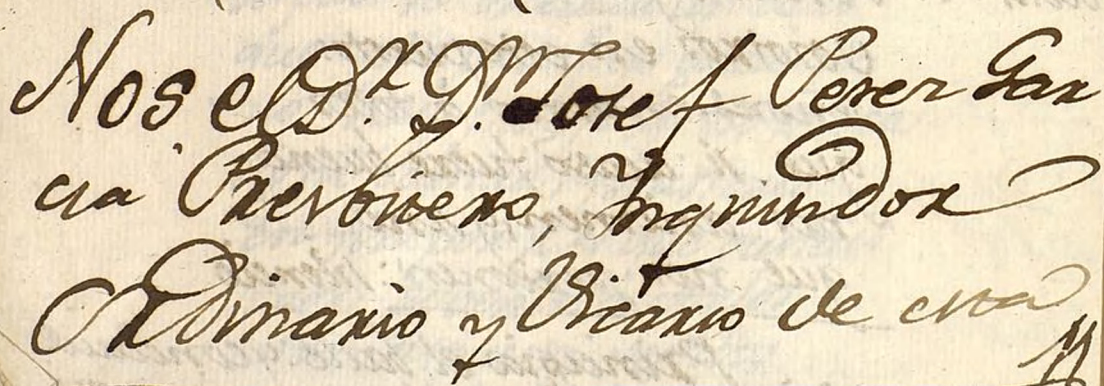 Nos el D.r D.n Josef Perez Gar
cia Presbitero, Inquisidor
Ordinario y Vicario de esta